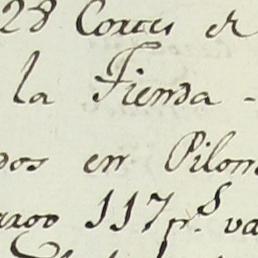 28 Cortes de
la Tienda -
dos en Pilon
117 p.s va